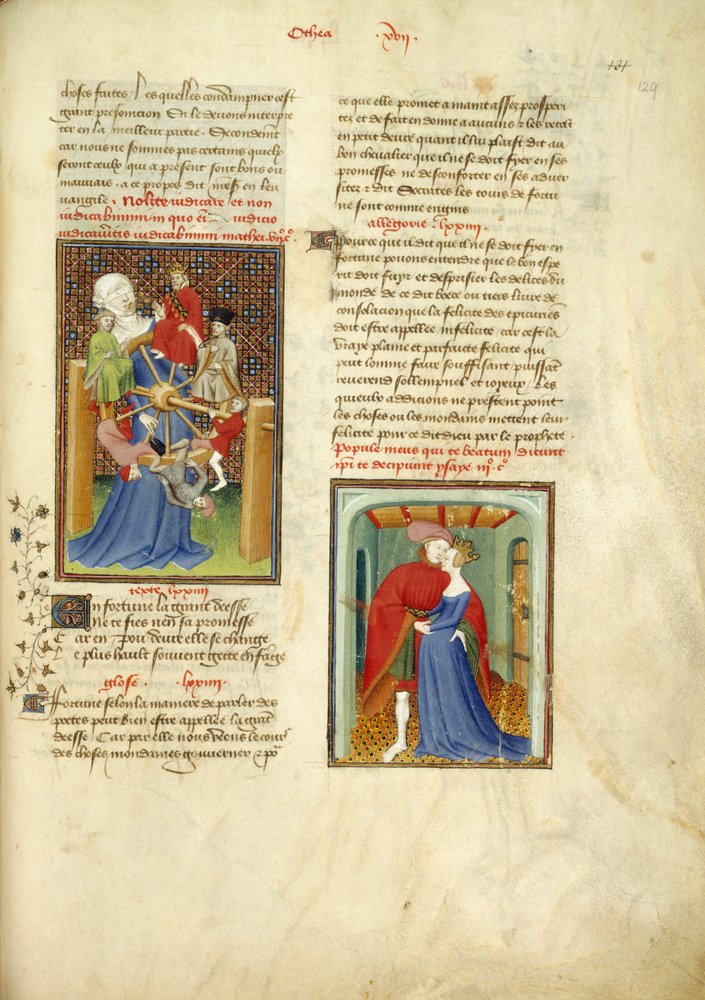 Othea .xvii.
131
129
choses faites / Les quelles condampner cest
grant presomcion Si le devons interpre
ter en la meilleur partie. Secondemt
car nous ne sommes pas certains quelz
seront ceulx qui a present sont bons ou
mauvais. a ce propos dit en leu
vangile. Nolite iudicare et non
iudicabimini. in quo eı iudicio
iudicaveritis iudicabimini mathei. vij.c.
texte lxxiiii
En fortune la grant deesse
Ne te fies nen sa promesse
Car en pou deure elle se change
Le plus hault souvent gette en fange
glose . lxxiiii .
Fortune selon la maniere de parler des
poetes peut bien estre appellee la grāt
deesse Car par elle nous veons le cours
des choses mondaines gouverner & po
ce que elle promet a maint assez prosperi
tez et de fait en donne a aucuns & les retolt
en petit deure quant il lui plaist dit au
bon chevalier que il ne se doit fyer en ses
promesses ne desconforter en ses adver
sitez & dit Socrates les tours de fortu
ne sont comme engins
allegorie lxxiiii.
Pource que il dit que il ne se doit fyer en
fortune pouons entendre que le bon espe
rit doit fuyr et desprisier les delices du
monde de ce dit boece ou tiers livre de
consolacion que la felicite des epicuriēs
doit estre appellee infelicite car cest la
vraye plaine et parfaicte felicite qui
peut lomme faire souffisant puissāt
reverend sollempnel et ioyeux Les
quieulx addicions ne prestent point
les choses ou les mondains mettent leur
felicite pour ce dit dieu par le prophete.
Popule meus qui te beatum dicunt
ipi te decipiunt ysaye iij.c.